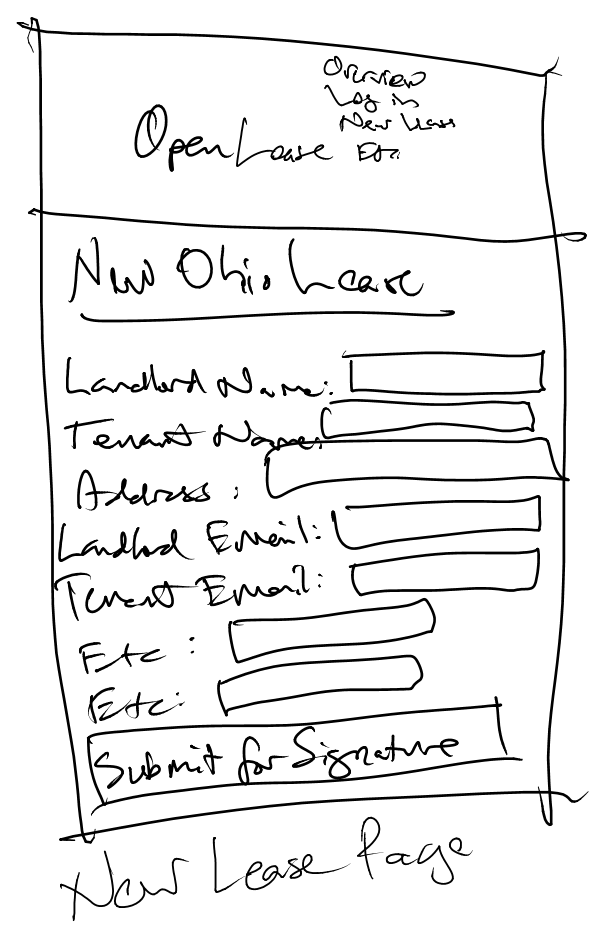 Overview
Log in
New Lease
Etc.
OpenLease
New Ohio Lease
Landlord Name:
Tenant Name:
Address:
Landlord Email:
Tenant Email:
Etc:
Etc:
Submit for Signature
New Lease Page